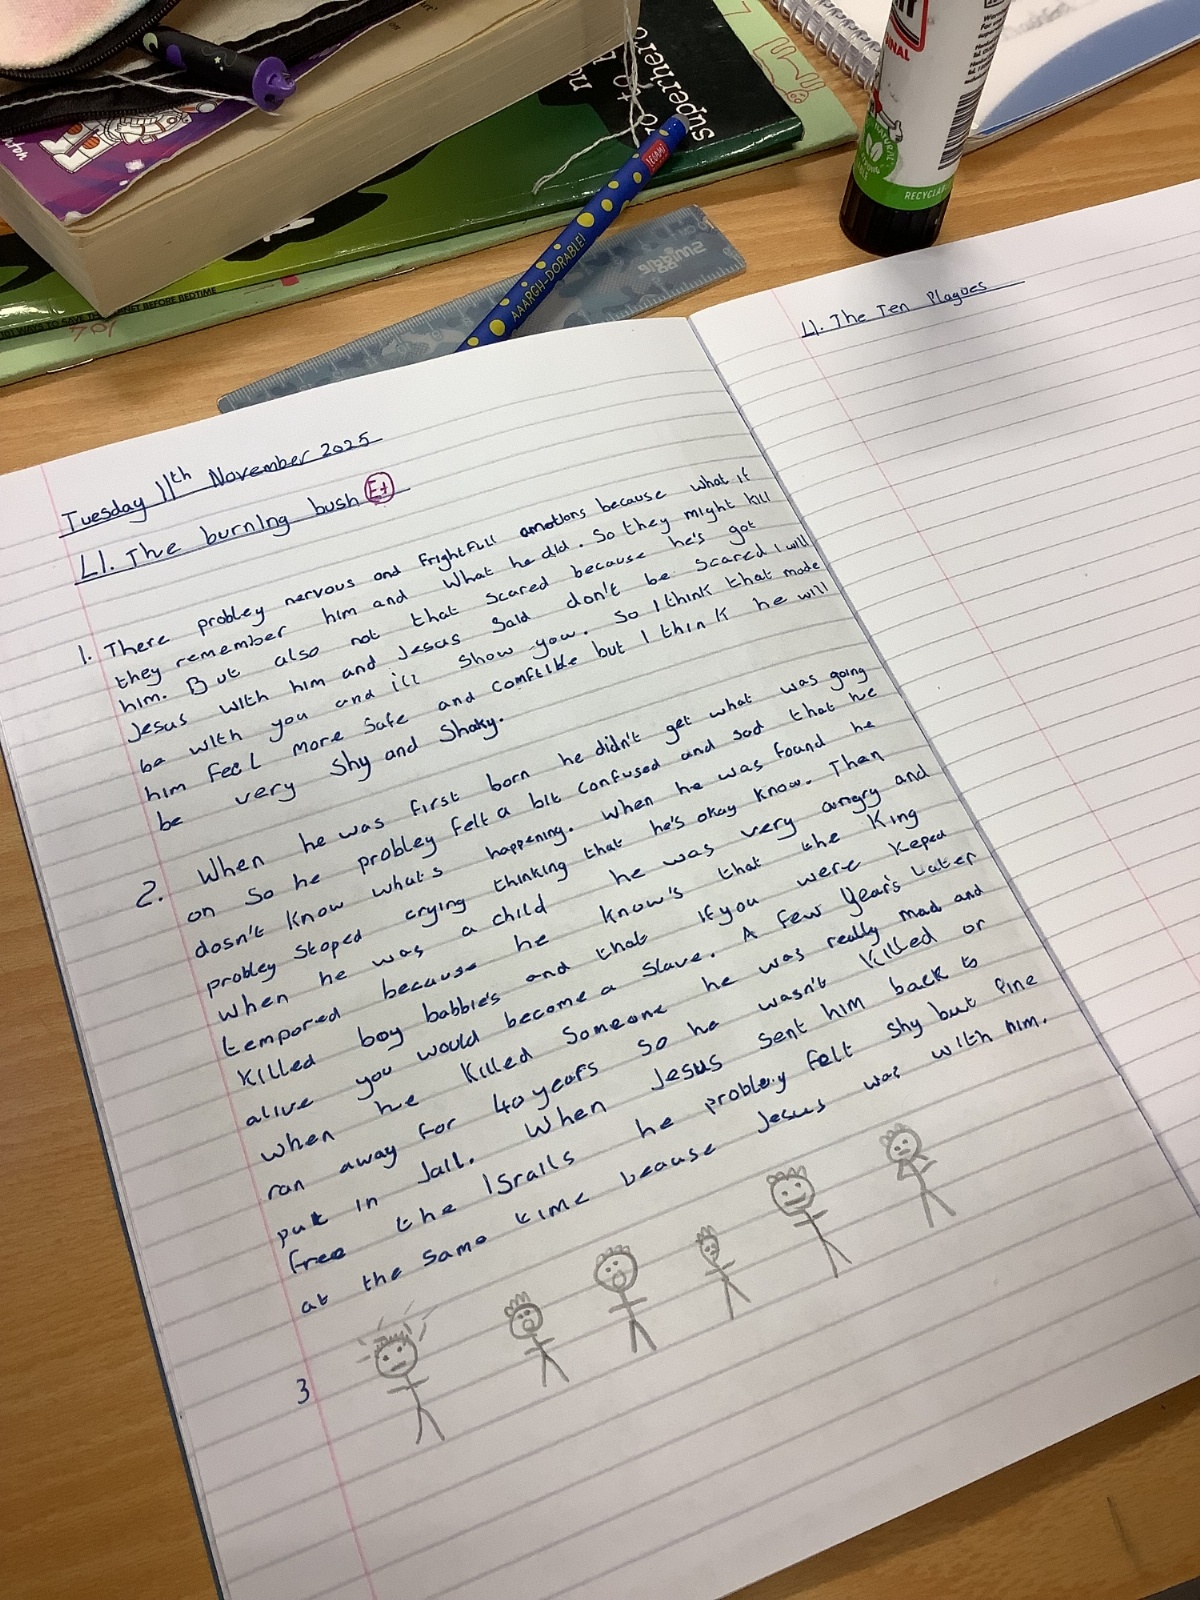 superhero
to
AAARGH-DORABLE!
smiggle
RECYCLAB
LI. The Ten Plagues
Tuesday 11th November 2025
LI. The burning bush E+
1. There probley nervous and frightfull emotions because what if
they remember him and what he did. So they might kill
him. But also not that scared because he's got
Jesus with him and Jesus said don't be scared I will
be with you and ill show you. So I think that made
him feel more safe and comftible but I think he will
be very shy and shaky.
2. When he was first born he didn't get what was going
on so he probley felt a bit confused and sad that he
dosn't know what's happening. When he was found he
probley stoped crying thinking that he's okay know. Then
when he was a child he was very angry and
tempored because he know's that the King
killed boy babbie's and that if you were keped
alive you would become a slave. A few Year's later
when he killed someone he was really mad and
ran away for 40 years so he wasn't killed or
put in Jail. When Jesus sent him back to
free the Israils he probley felt shy but fine
at the same time beause Jesus was with him.
3